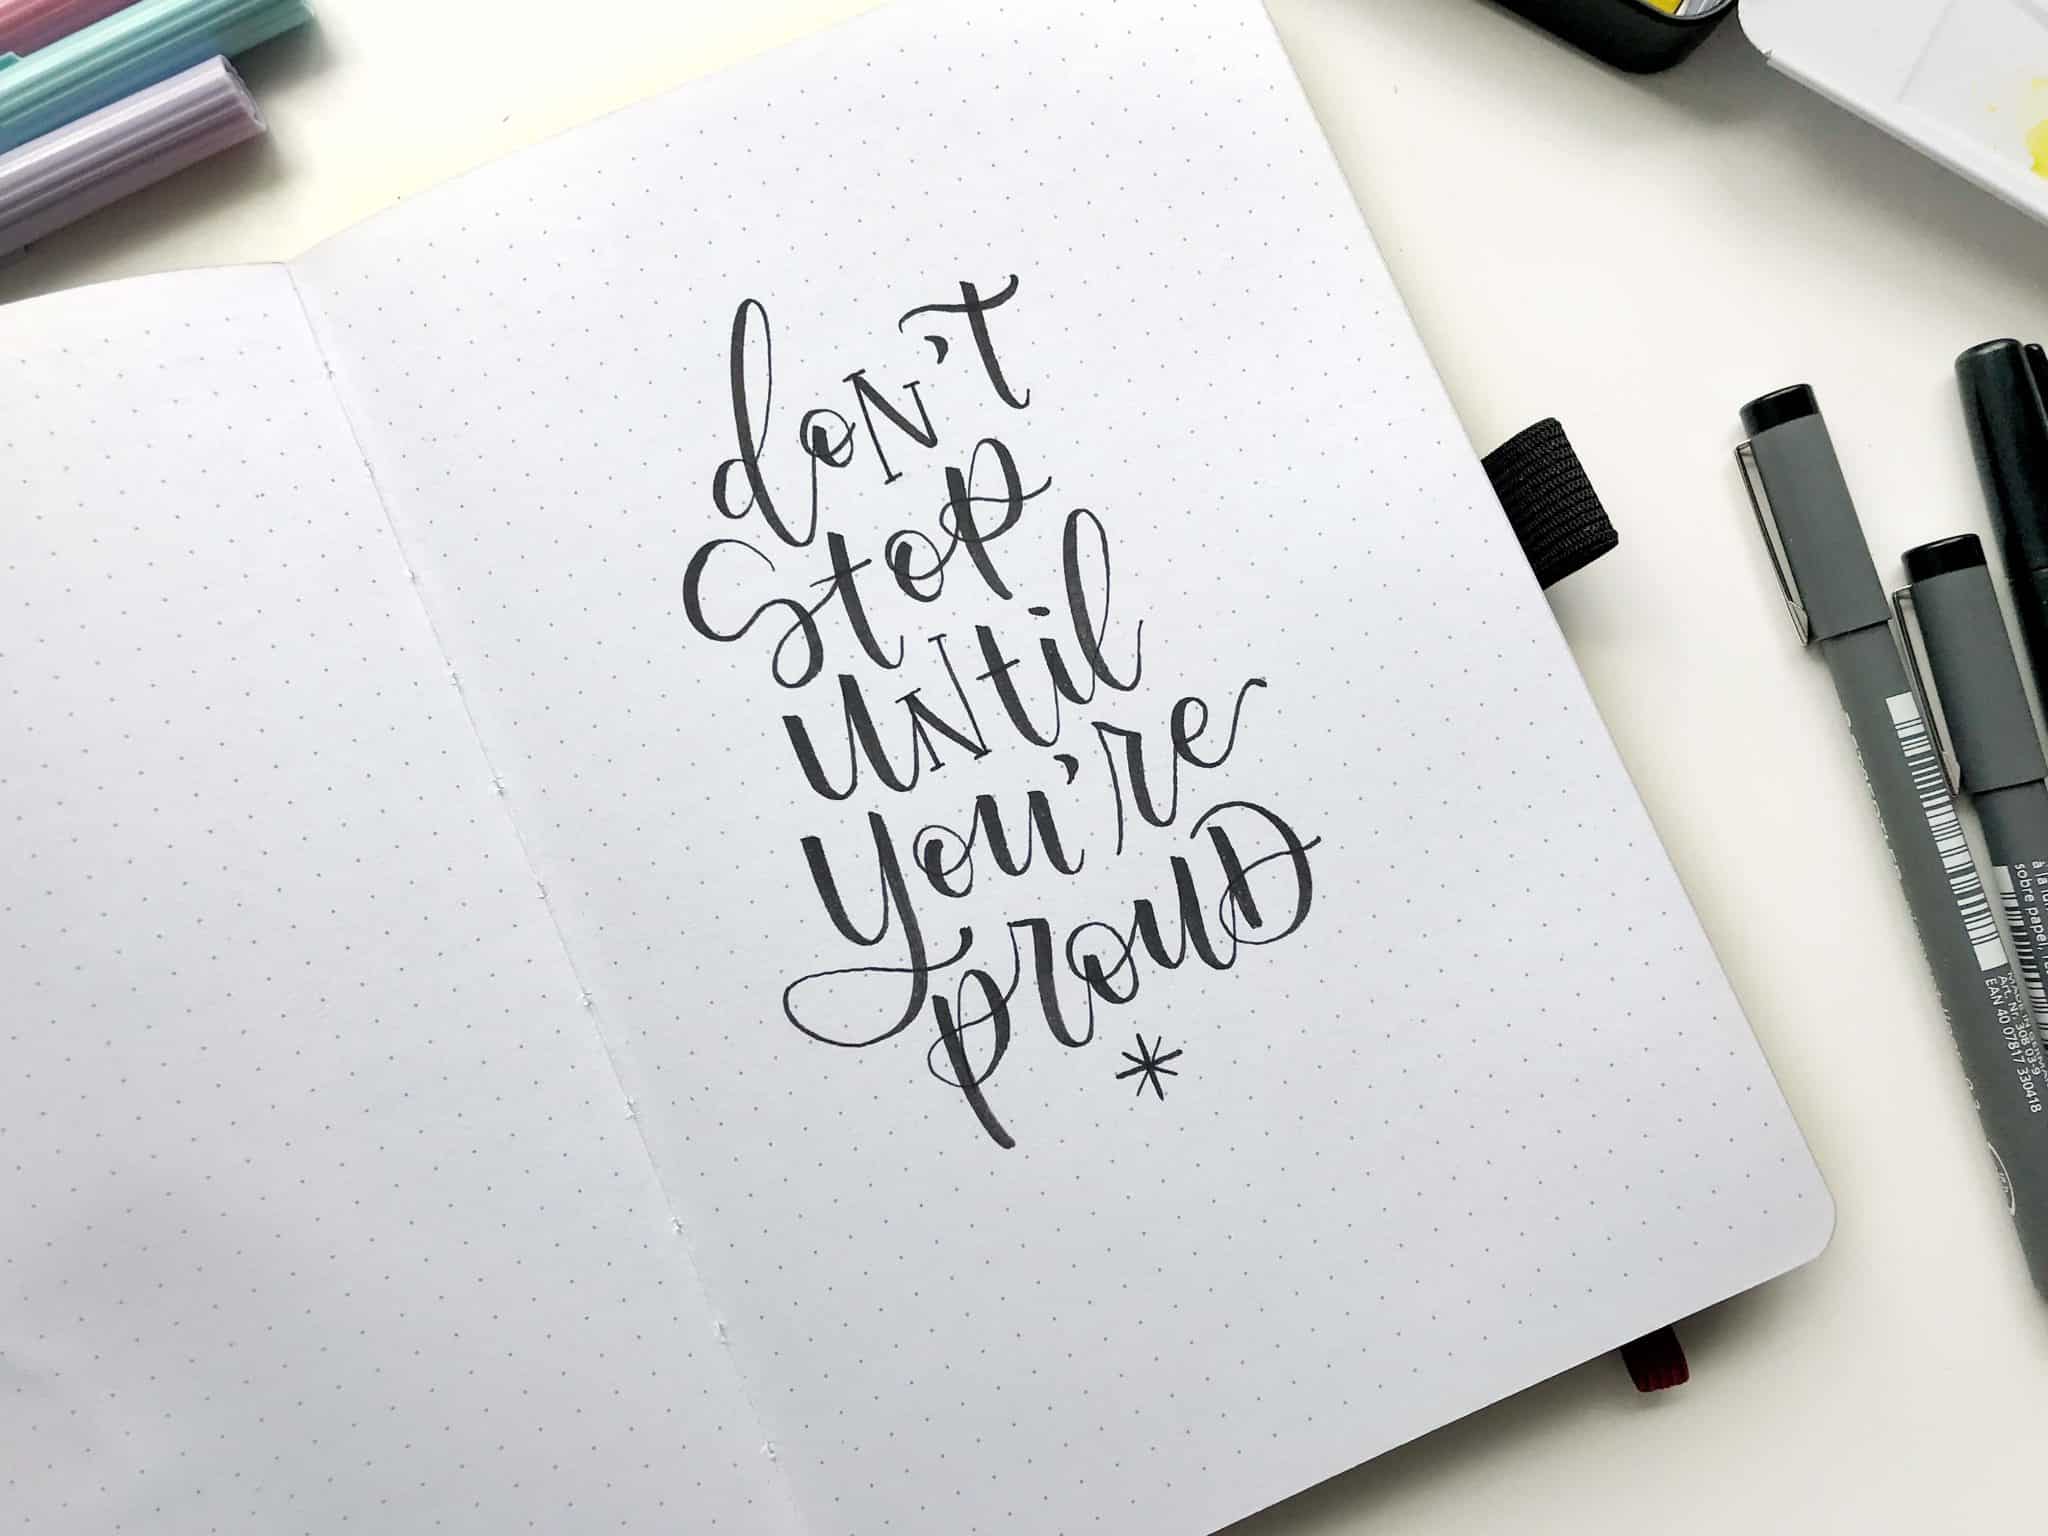 don't
stop
until
you're
proud
*
sobre papel,
Art. Nr. 308 03-9
EAN 40 07817 330418